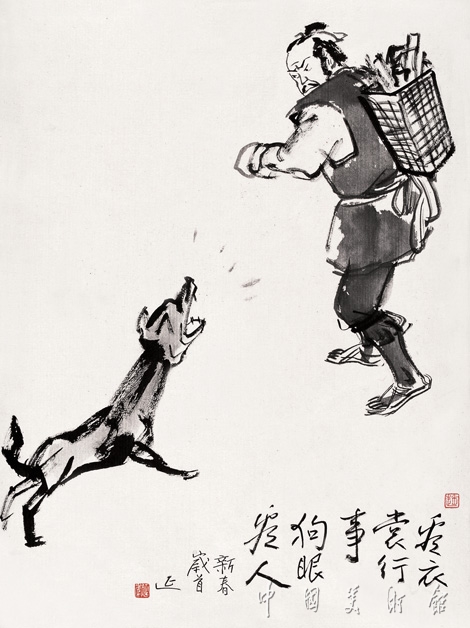 看衣
裳行
事
狗眼
看人
新春
歲首
中國美術館